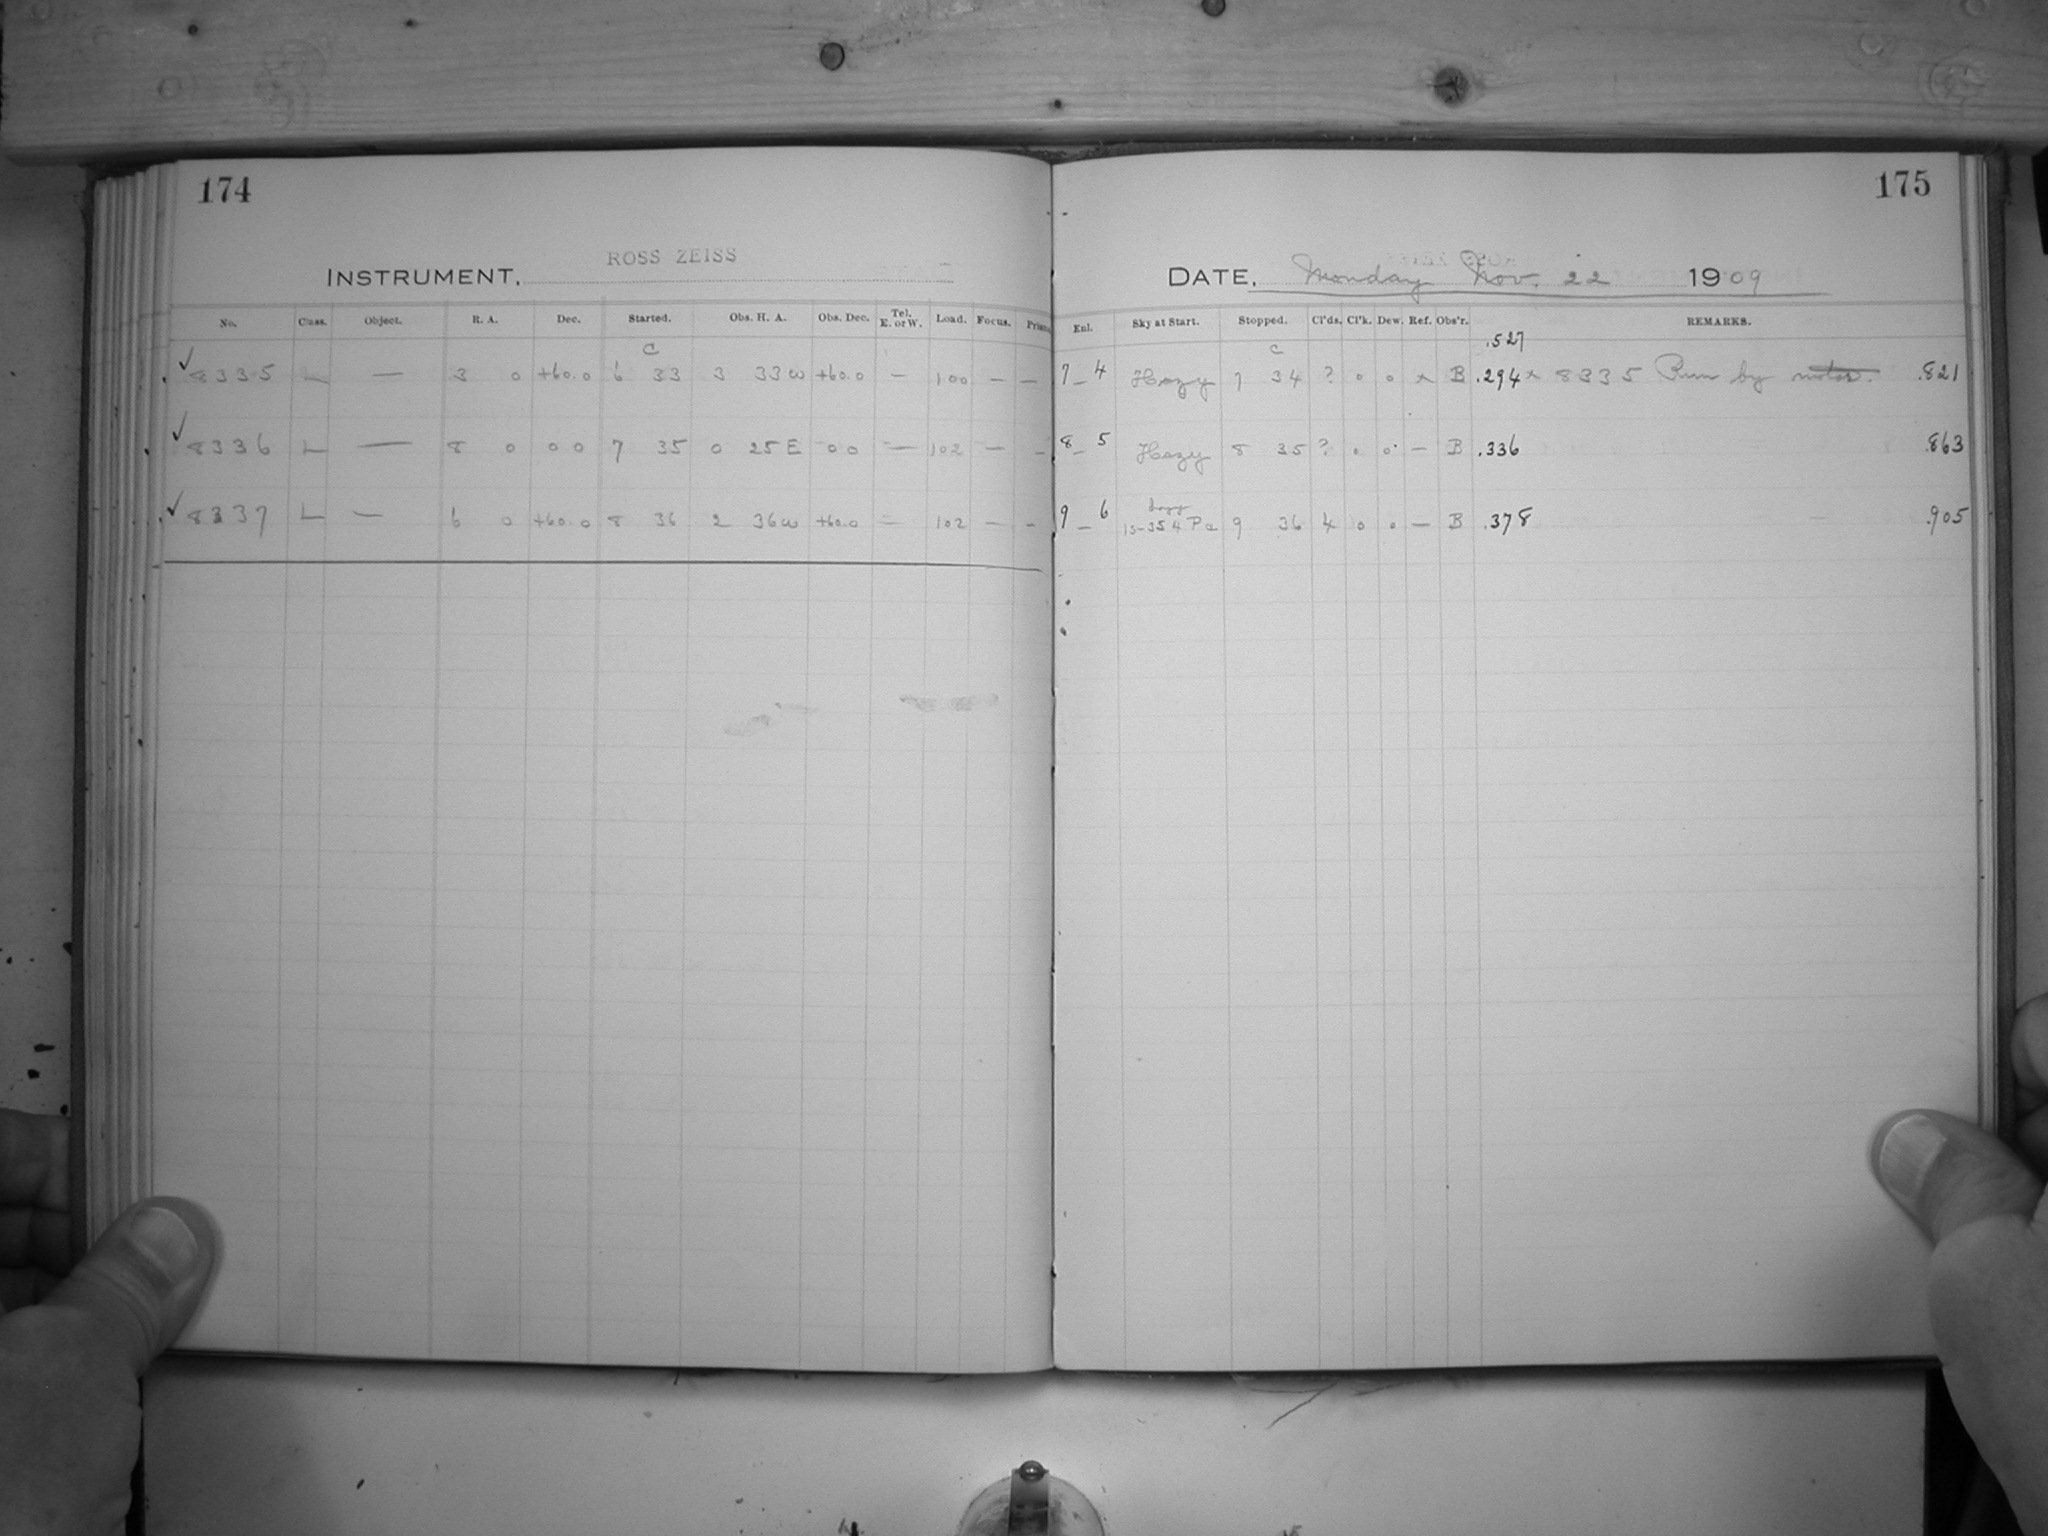 174
ROSS ZEISS
INSTRUMENT,
No. Class. Object. R. A. Dec. Started. Obs. H. A. Obs. Dec. Tel. E. or W. Load. Focus. Prism
C
✓ 8335 L — 3 0 +60.0 6 33 3 33 W +60.0 — 100 — —
✓ 8336 L — 8 0 0 0 7 35 0 25 E 0 0 — 102 — —
✓ 8337 L — 6 0 +60.0 8 36 2 36 W +60.0 — 102 — —
175
DATE, Monday Nov. 22 1909
Enl. Sky at Start. Stopped. Cl'ds. Cl'k. Dew. Ref. Obs'r. REMARKS.
C .527
7_4 Hazy 7 34 ? 0 0 x B .294 x 8335 Run by .821
8_5 Hazy 8 35 ? 0 0 — B .336 .863
9_6 15-35 4 Pa 9 36 4 0 0 — B .378 .905